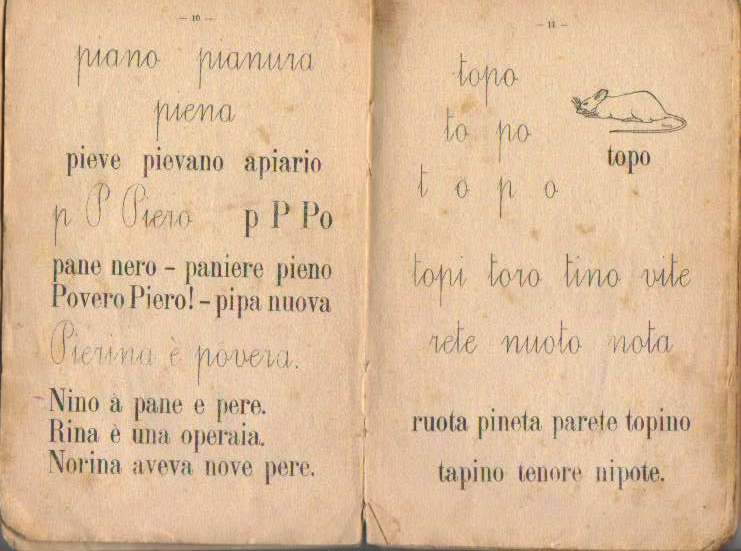 — 10 —
piano pianura
piena
pieve pievano apiario
p P Piero p P Po
pane nero – paniere pieno
Povero Piero! – pipa nuova
Pierina è povera.
Nino à pane e pere.
Rina è una operaia.
Norina aveva nove pere.
— 11 —
topo
to po
topo
t o p o
topi toro tino vite
rete nuoto nota
ruota pineta parete topino
tapino tenore nipote.